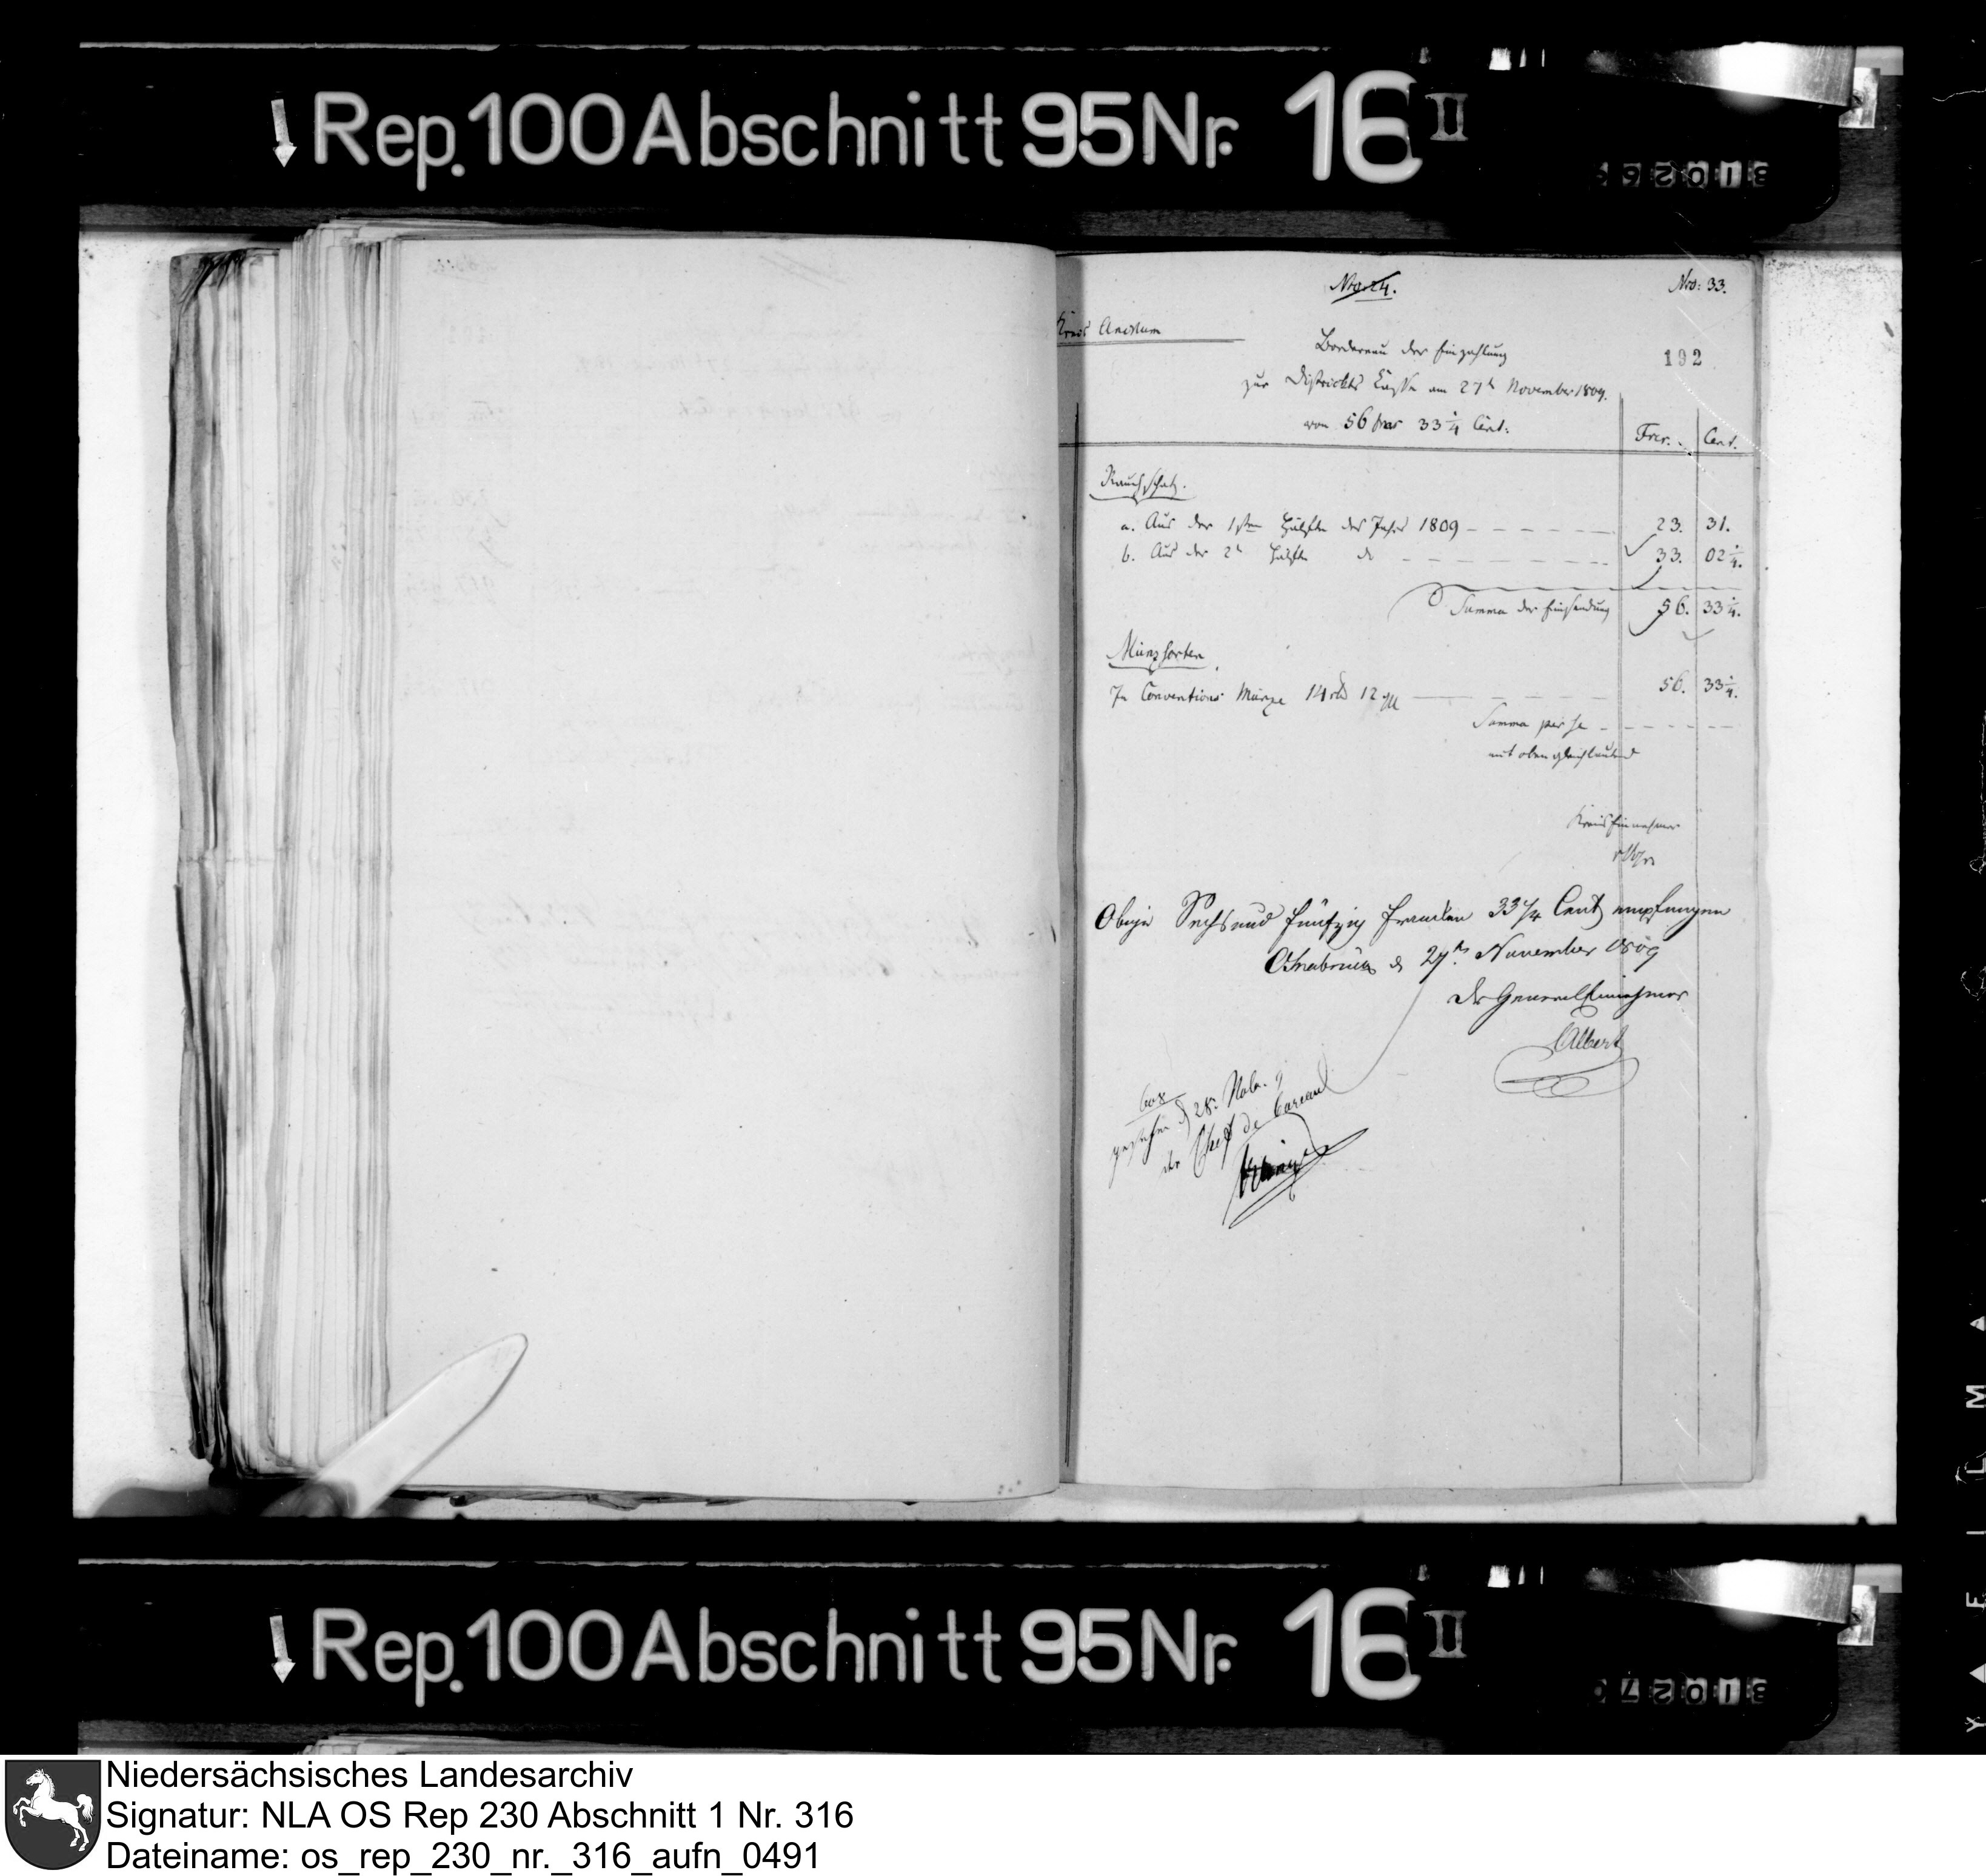 Rep. 100 Abschnitt 95 Nr. 16 II
Nro: 24.
Nro: 33.
Kreis Anckum
Bordereau der Einzahlung
192
zur Districkts Casse am 27t November 1809.
von 56 frcs 33 1/4 Cent:
Frcs. Cent.
Rauchschatz.
a. Aus der 1sten Hälfte des Jahrs 1809 23. 31.
b. Aus der 2t Hälfte do 33. 02 1/4.
Summa der Einsendung 56. 33 1/4.
Münzsorten
In Conventions Münze 14 rth 12 56. 33 1/4.
Summa per se
mit oben gleichlautend
Kreiseinnehmer
Obige Sechs und fünfzig Franken 33 1/4 Cent empfangen
Osnabrück d 27ten November 1809
Der General Einnehmer
Albert
608
gesehen d 28. Nobr. 9
der Chef de bureau
Rep. 100 Abschnitt 95 Nr. 16 II
Niedersächsisches Landesarchiv
Signatur: NLA OS Rep 230 Abschnitt 1 Nr. 316
Dateiname: os_rep_230_nr._316_aufn_0491